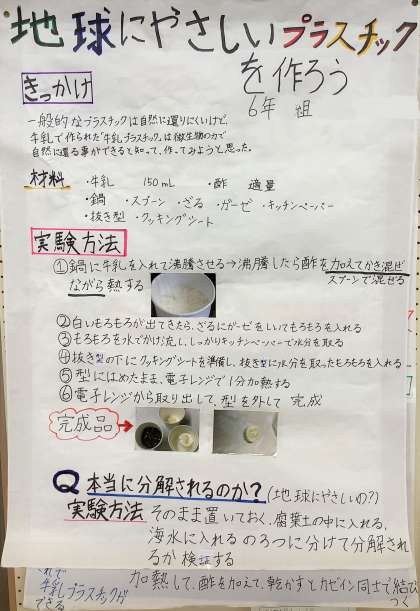 地球にやさしいプラスチック
を作ろう
6年 組
きっかけ
一般的なプラスチックは自然に還りにくいけど、
牛乳で作られた「牛乳プラスチック」は微生物の力で
自然に還る事ができると知って、作ってみようと思った。
材料
・牛乳 150mL ・酢 適量
・鍋 ・スプーン ・ざる ・ガーゼ ・キッチンペーパー
・抜き型 ・クッキングシート
実験方法
①鍋に牛乳を入れて沸騰させる→沸騰したら酢を加えてかき混ぜ
ながら熱する
スプーンで混ぜる
②白いもろもろが出てきたら、ざるにガーゼをしいてもろもろを入れる
③もろもろを水でかけ流し、しっかりキッチンペーパーで水分を取る
④抜き型の下にクッキングシートを準備し、抜き型に水分を取ったもろもろを入れる
⑤型にはめたまま、電子レンジで1分加熱する
⑥電子レンジから取り出して、型を外して 完成
完成品
Q 本当に分解されるのか?(地球にやさしいの?)
実験方法 そのまま置いておく、腐葉土の中に入れる、
海水に入れる の3つに分けて分解され
るか 検証する
加熱して、酢を加えて、乾かすとカゼイン同士で結び
つく
牛乳プラスチックが
できる